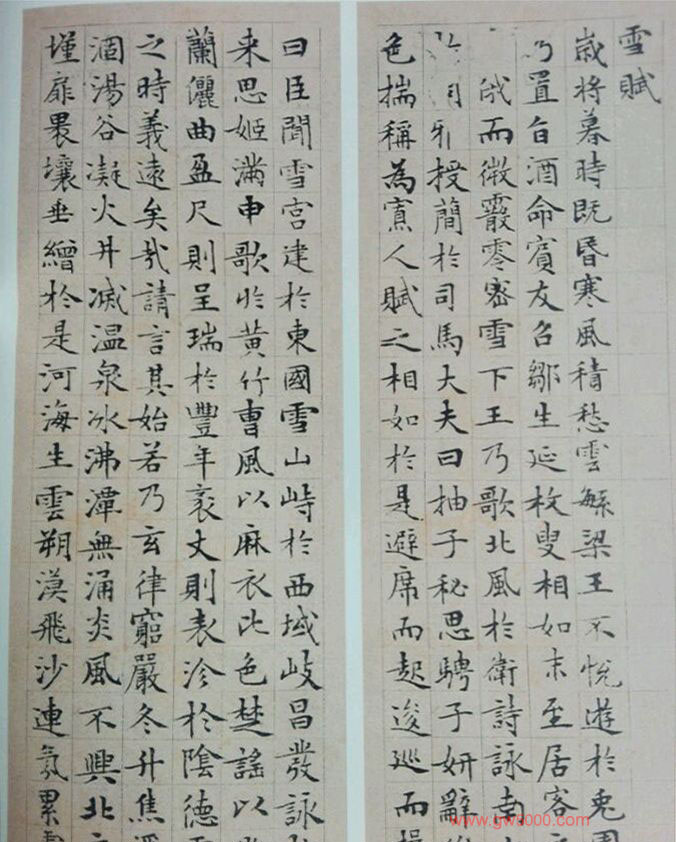 雪賦
歲將暮時既昏寒風積愁雲繇梁王不悅遊於兎園
乃置旨酒命賓友召鄒生延枚叟相如末至居客
俄而微霰零密雪下王乃歌北風於衛詩詠南
雅授簡於司馬大夫曰抽子秘思騁子妍辭
色揣稱為寡人賦之相如於是避席而起逡巡而揖
曰臣聞雪宮建於東國雪山峙於西域岐昌發詠
来思姬滿申歌於黃竹曹風以麻衣比色楚謠以
蘭儷曲盈尺則呈瑞於豐年袤丈則表沴於陰德
之時義遠矣哉請言其始若乃玄律窮嚴冬升焦
涸湯谷凝火井滅温泉冰沸潭無涌炎風不興北
墐扉壤垂繒於是河海生雲朔漠飛沙連氛累
www.gw8000.com